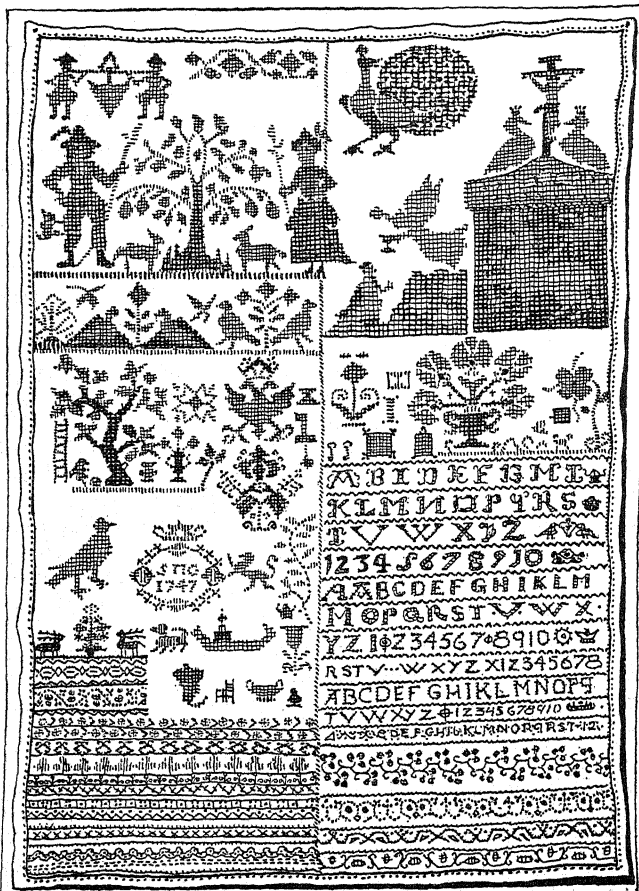 SMG
1747
A B I D E F G M I
K L M N O P Q R S
T V V W X Y Z
1 2 3 4 5 6 7 8 9 10
A A B C D E F G H I K L M
M O P Q R S T V V W X
Y Z 1 2 3 4 5 6 7 8 9 10
R S T V W X Y Z X 1 2 3 4 5 6 7 8
A B C D E F G H I K L M N O P Q
T V W X Y Z 1 2 3 4 5 6 7 8 9 10